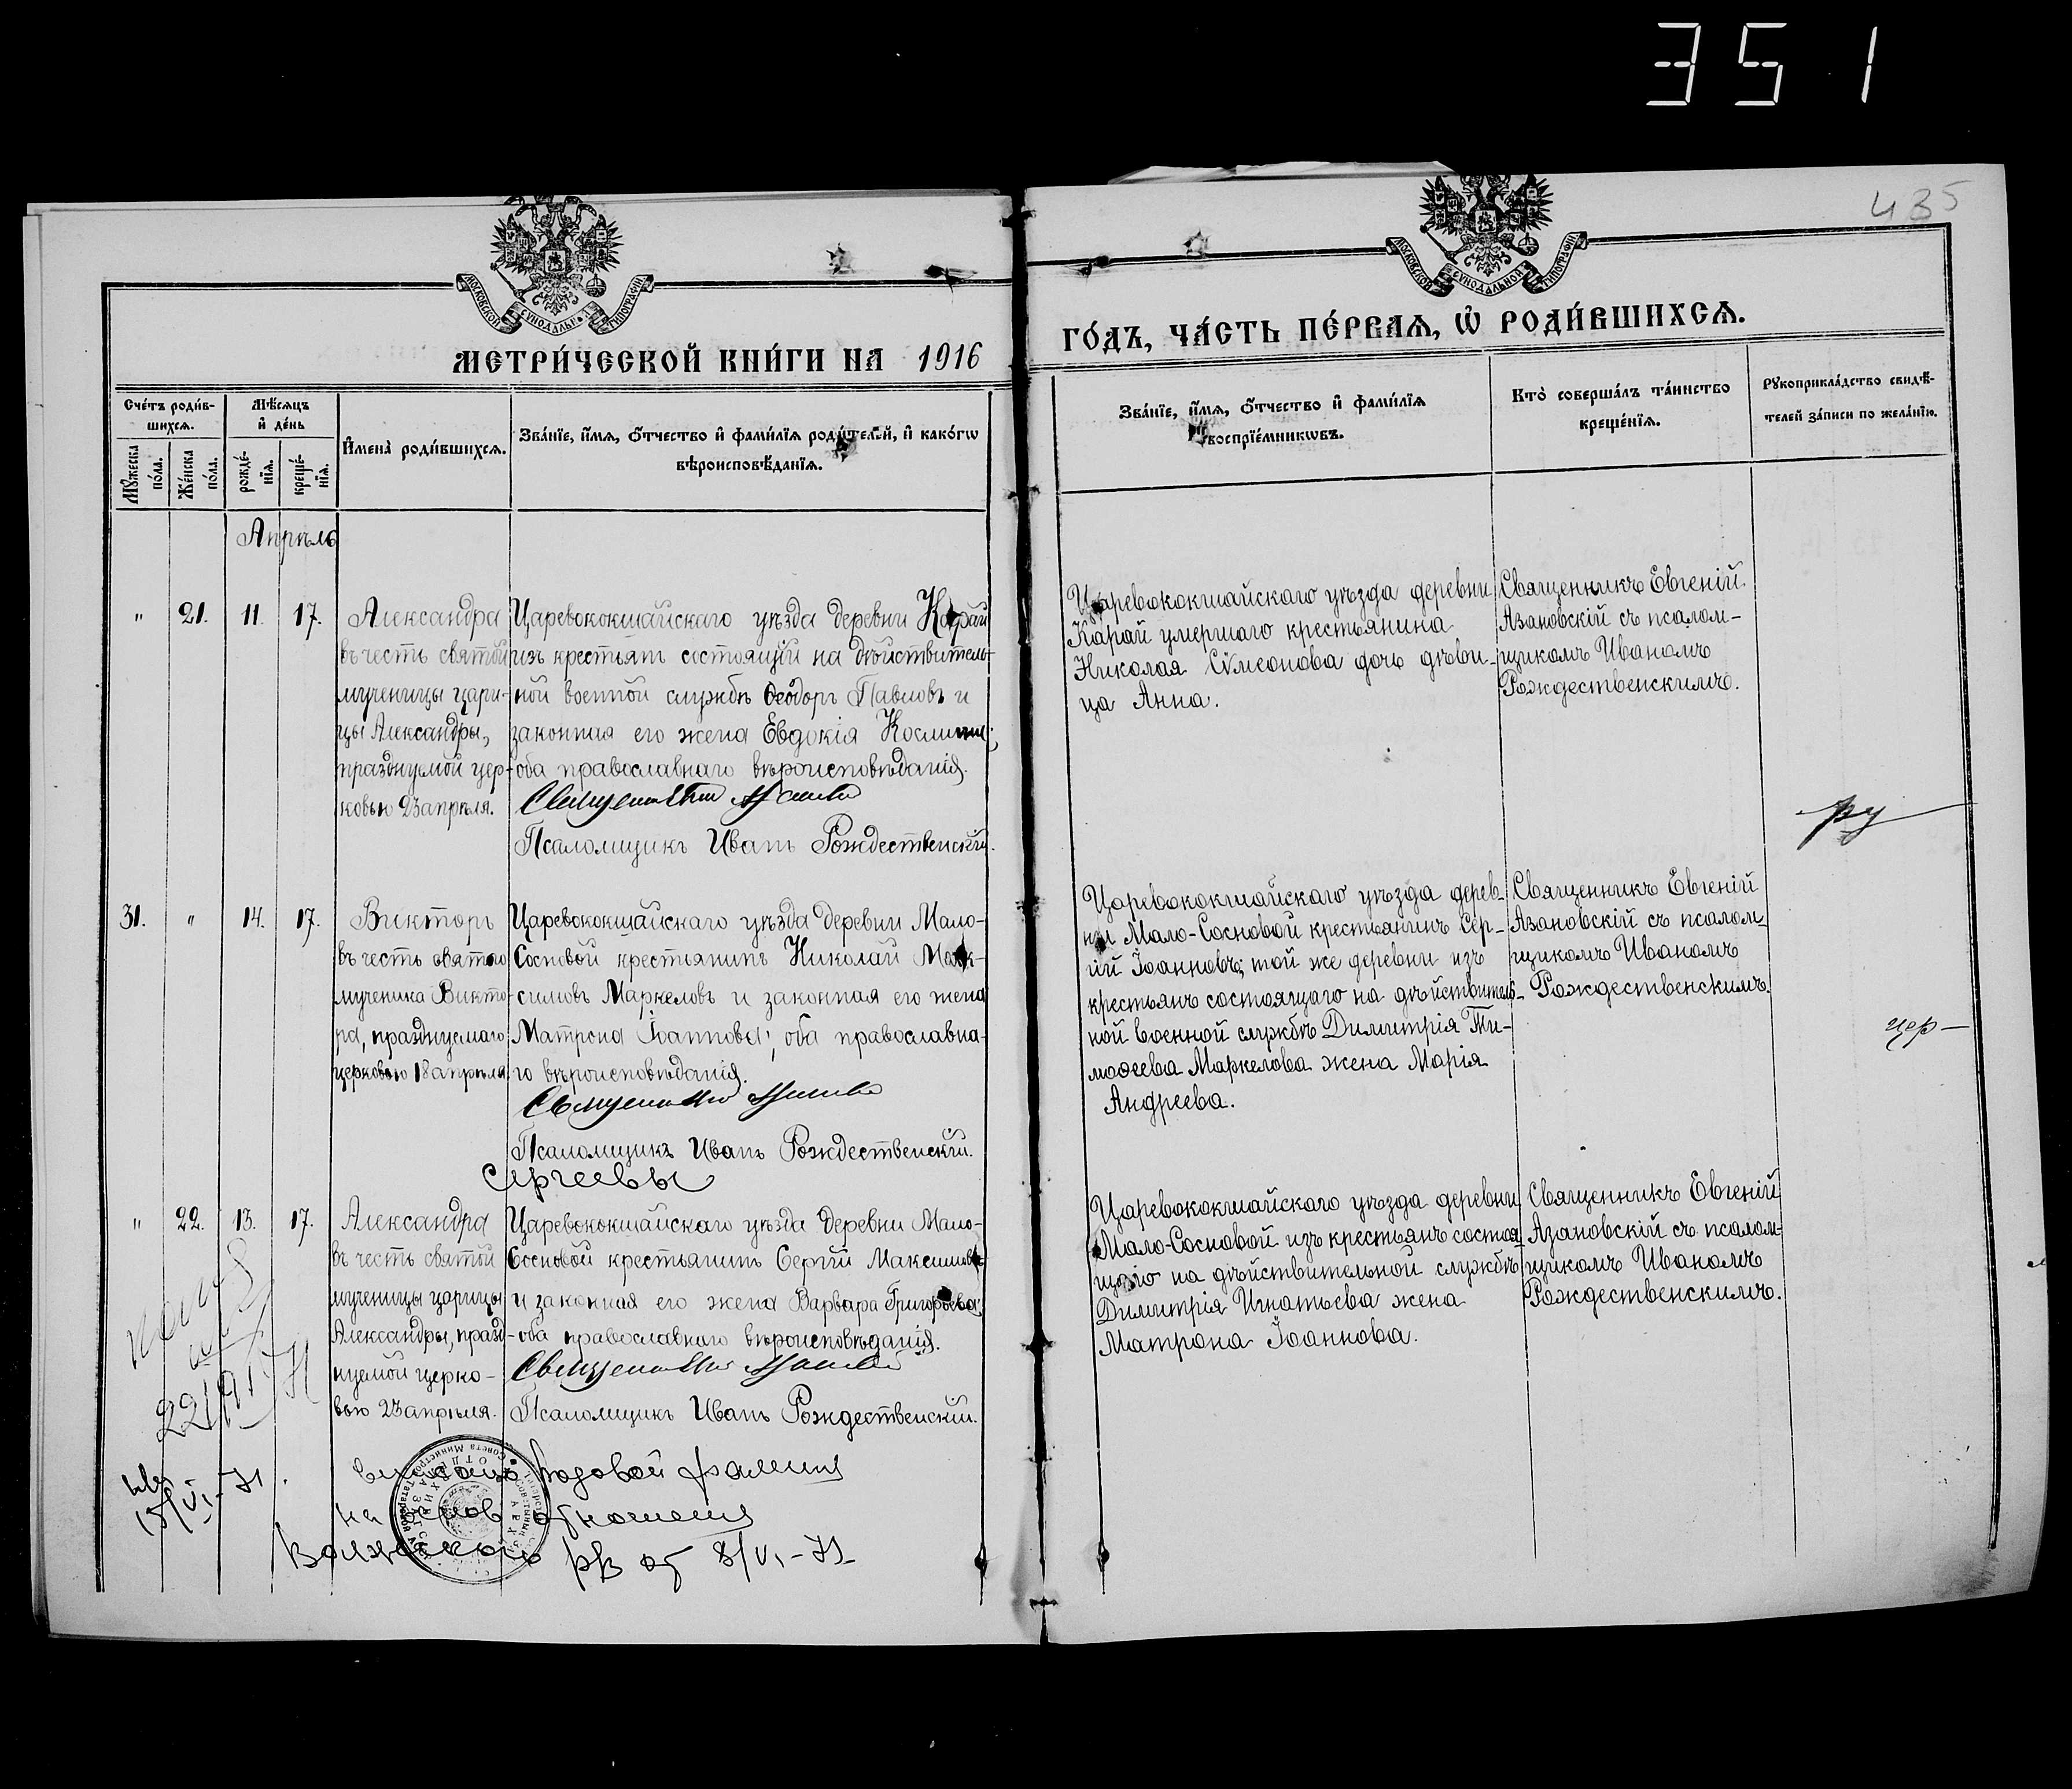 351
435
МОСКОВСКОЙ СѴНОДАЛЬНОЙ ТИПОГРАФІИ.
МОСКОВСКОЙ СѴНОДАЛЬНОЙ ТИПОГРАФІИ.
МЕТРИ́ЧЕСКОЙ КНИ́ГИ НА 1916
ГО́ДЪ, ЧА́СТЬ ПЕ́РВАѦ, Ѽ РОДИ́ВШИХСѦ.
Сче́тъ роди́в-
шихсѧ.
Мꙋ́жеска по́ла.
Же́нска по́ла.
Мѣ́сѧцъ
и҆ де́нь
рожде́-
нїѧ.
креще́-
нїѧ.
И҆мена̀ роди́вшихсѧ.
Зва́нїе, и҆́мѧ, ѻ҆́тчество и҆ фами́лїѧ роди́телей, и҆ како́гѡ
вѣроисповѣ́данїѧ.
Зва́нїе, и҆́мѧ, ѻ҆́тчество и҆ фами́лїѧ
воспрїе́мникѡвъ.
Кто̀ соверша́лъ та́инство
креще́нїѧ.
Рꙋкоприкла́дство свидѣ́-
телей за́писи по жела́нїю.
Апрѣль
" 21. 11. 17.
Александра
въ честь святой
мученицы цари-
цы Александры,
празднуемой цер-
ковью 23 апрѣля.
Царевококшайскаго уѣзда деревни Карай
изъ крестьянъ состоящій на дѣйствитель-
ной военной службѣ Ѳеодоръ Павловъ и
законная его жена Евдокія Космина;
оба православнаго вѣроисповѣданія.
Псаломщикъ Иванъ Рождественскій.
Царевококшайскаго уѣзда деревни
Карай умершаго крестьянина
Николая Сѵмеонова дочь дѣви-
ца Анна.
Священникъ Евгеній
Азановскій съ псалом-
щикомъ Иваномъ
Рождественскимъ.
31. " 14. 17.
Викторъ
въ честь святаго
мученика Викто-
ра, празднуемаго
церковью 18 апрѣля
Царевококшайскаго уѣзда деревни Мало-
Сосновой крестьянинъ Николай Мак-
симовъ Маркеловъ и законная его жена
Матрона Іоаннова; оба православна-
го вѣроисповѣданія.
Псаломщикъ Иванъ Рождественскій.
Царевококшайскаго уѣзда дерев-
ни Мало-Сосновой крестьянинъ Сер-
гій Іоанновъ; той же деревни изъ
крестьянъ состоящаго на дѣйствитель-
ной военной службѣ Димитрія Ти-
моѳеева Маркелова жена Марія
Андреева.
Священникъ Евгеній
Азановскій съ псалом-
щикомъ Иваномъ
Рождественскимъ.
Сергеевы
" 22. 13. 17.
Александра
въ честь святой
мученицы царицы
Александры, празд-
нуемой церко-
вью 23 апрѣля.
Царевококшайскаго уѣзда деревни Мало-
Сосновой крестьянинъ Сергій Максимовъ
и законная его жена Варвара Григорьева;
оба православнаго вѣроисповѣданія.
Псаломщикъ Иванъ Рождественскій.
Царевококшайскаго уѣзда деревни
Мало-Сосновой изъ крестьянъ состоя-
щаго на дѣйствительной службѣ
Димитрія Игнатьева жена
Матрона Іоаннова.
Священникъ Евгеній
Азановскій съ псалом-
щикомъ Иваномъ
Рождественскимъ.
родовой фамилии
на основ отношения
Волжского от 8/VI-71